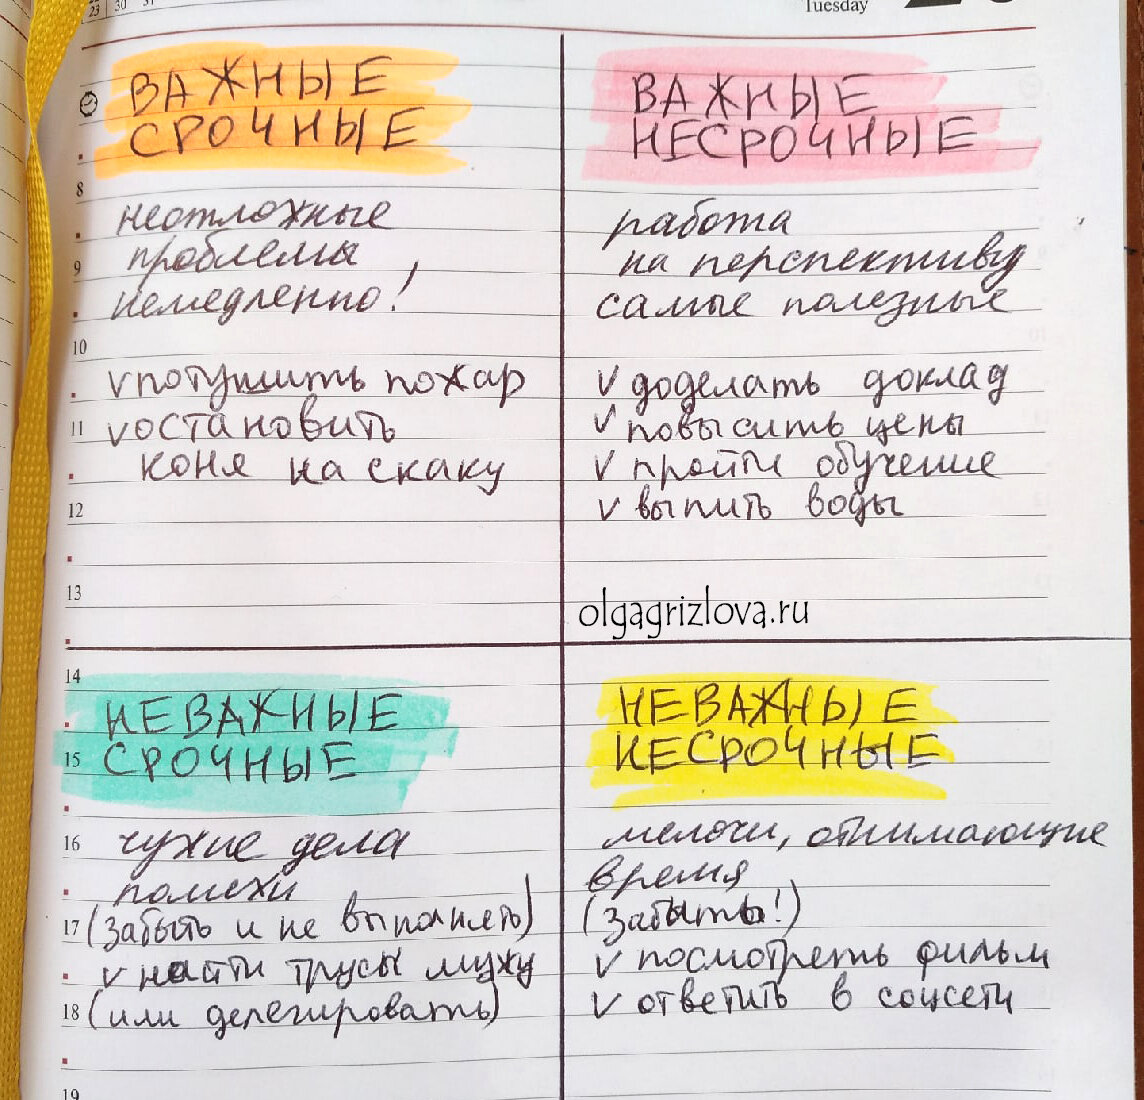 23 30 31
Tuesday
ВАЖНЫЕ
СРОЧНЫЕ
неотложные
проблемы
немедленно!
v потушить пожар
v остановить
коня на скаку
ВАЖНЫЕ
НЕСРОЧНЫЕ
работа
на перспективу
самые полезные
v доделать доклад
v повысить цены
v пройти обучение
v выпить воды
olgagrizlova.ru
НЕВАЖНЫЕ
СРОЧНЫЕ
чужие дела
помехи
(забыть и не выполнять)
v найти трусы мужу
(или делегировать)
НЕВАЖНЫЕ
НЕСРОЧНЫЕ
мелочи, отнимающие
время
(забыть!)
v посмотреть фильм
v ответить в соцсети
8
9
10
11
12
13
14
15
16
17
18
19